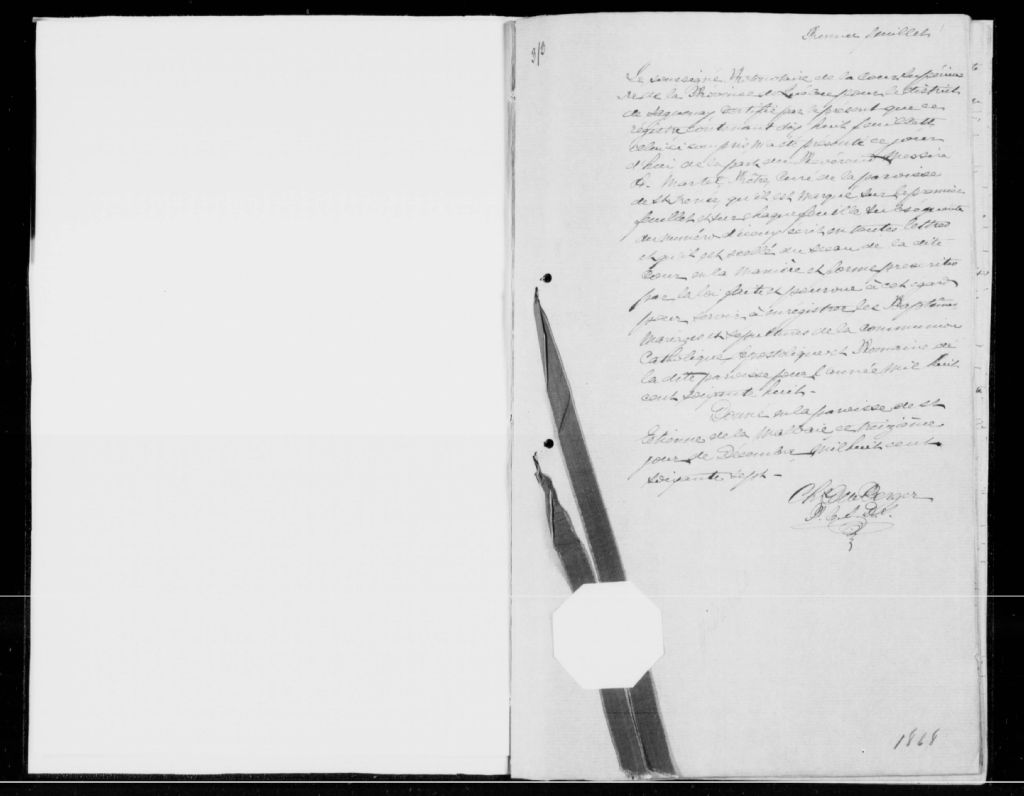 Premier feuillet
Le soussigné Protonotaire de la Cour Supérieu
re de la Province de Québec pour le district
de Saguenay certifie par le présent que ce
régistre contenant dix huit feuillets
celui ci compris m'a été présenté ce jour
d'hui de la part du Révérend Messire
Martel, Prêtre Curé de la paroisse
de St qu'il est marqué sur le premier
feuillet et sur chaque feuillet subséquent
du numéro d'iceux écrit en toutes lettres
et qu'il est scellé du sceau de la dite
Cour en la manière et forme prescrites
par la loi faite et pourvue à cet égard
pour servir à enrégistrer les Baptêmes
Mariages et Sépultures de la Communion
Catholique Apostolique et Romaine de
la dite paroisse pour l'année mil huit
cent soixante huit -
Donné en la paroisse de St
Etienne de la Malbaie ce
jour de Décembre mil huit cent
soixante sept -
Chs Du Berger
P. C. S. D. S.
1868